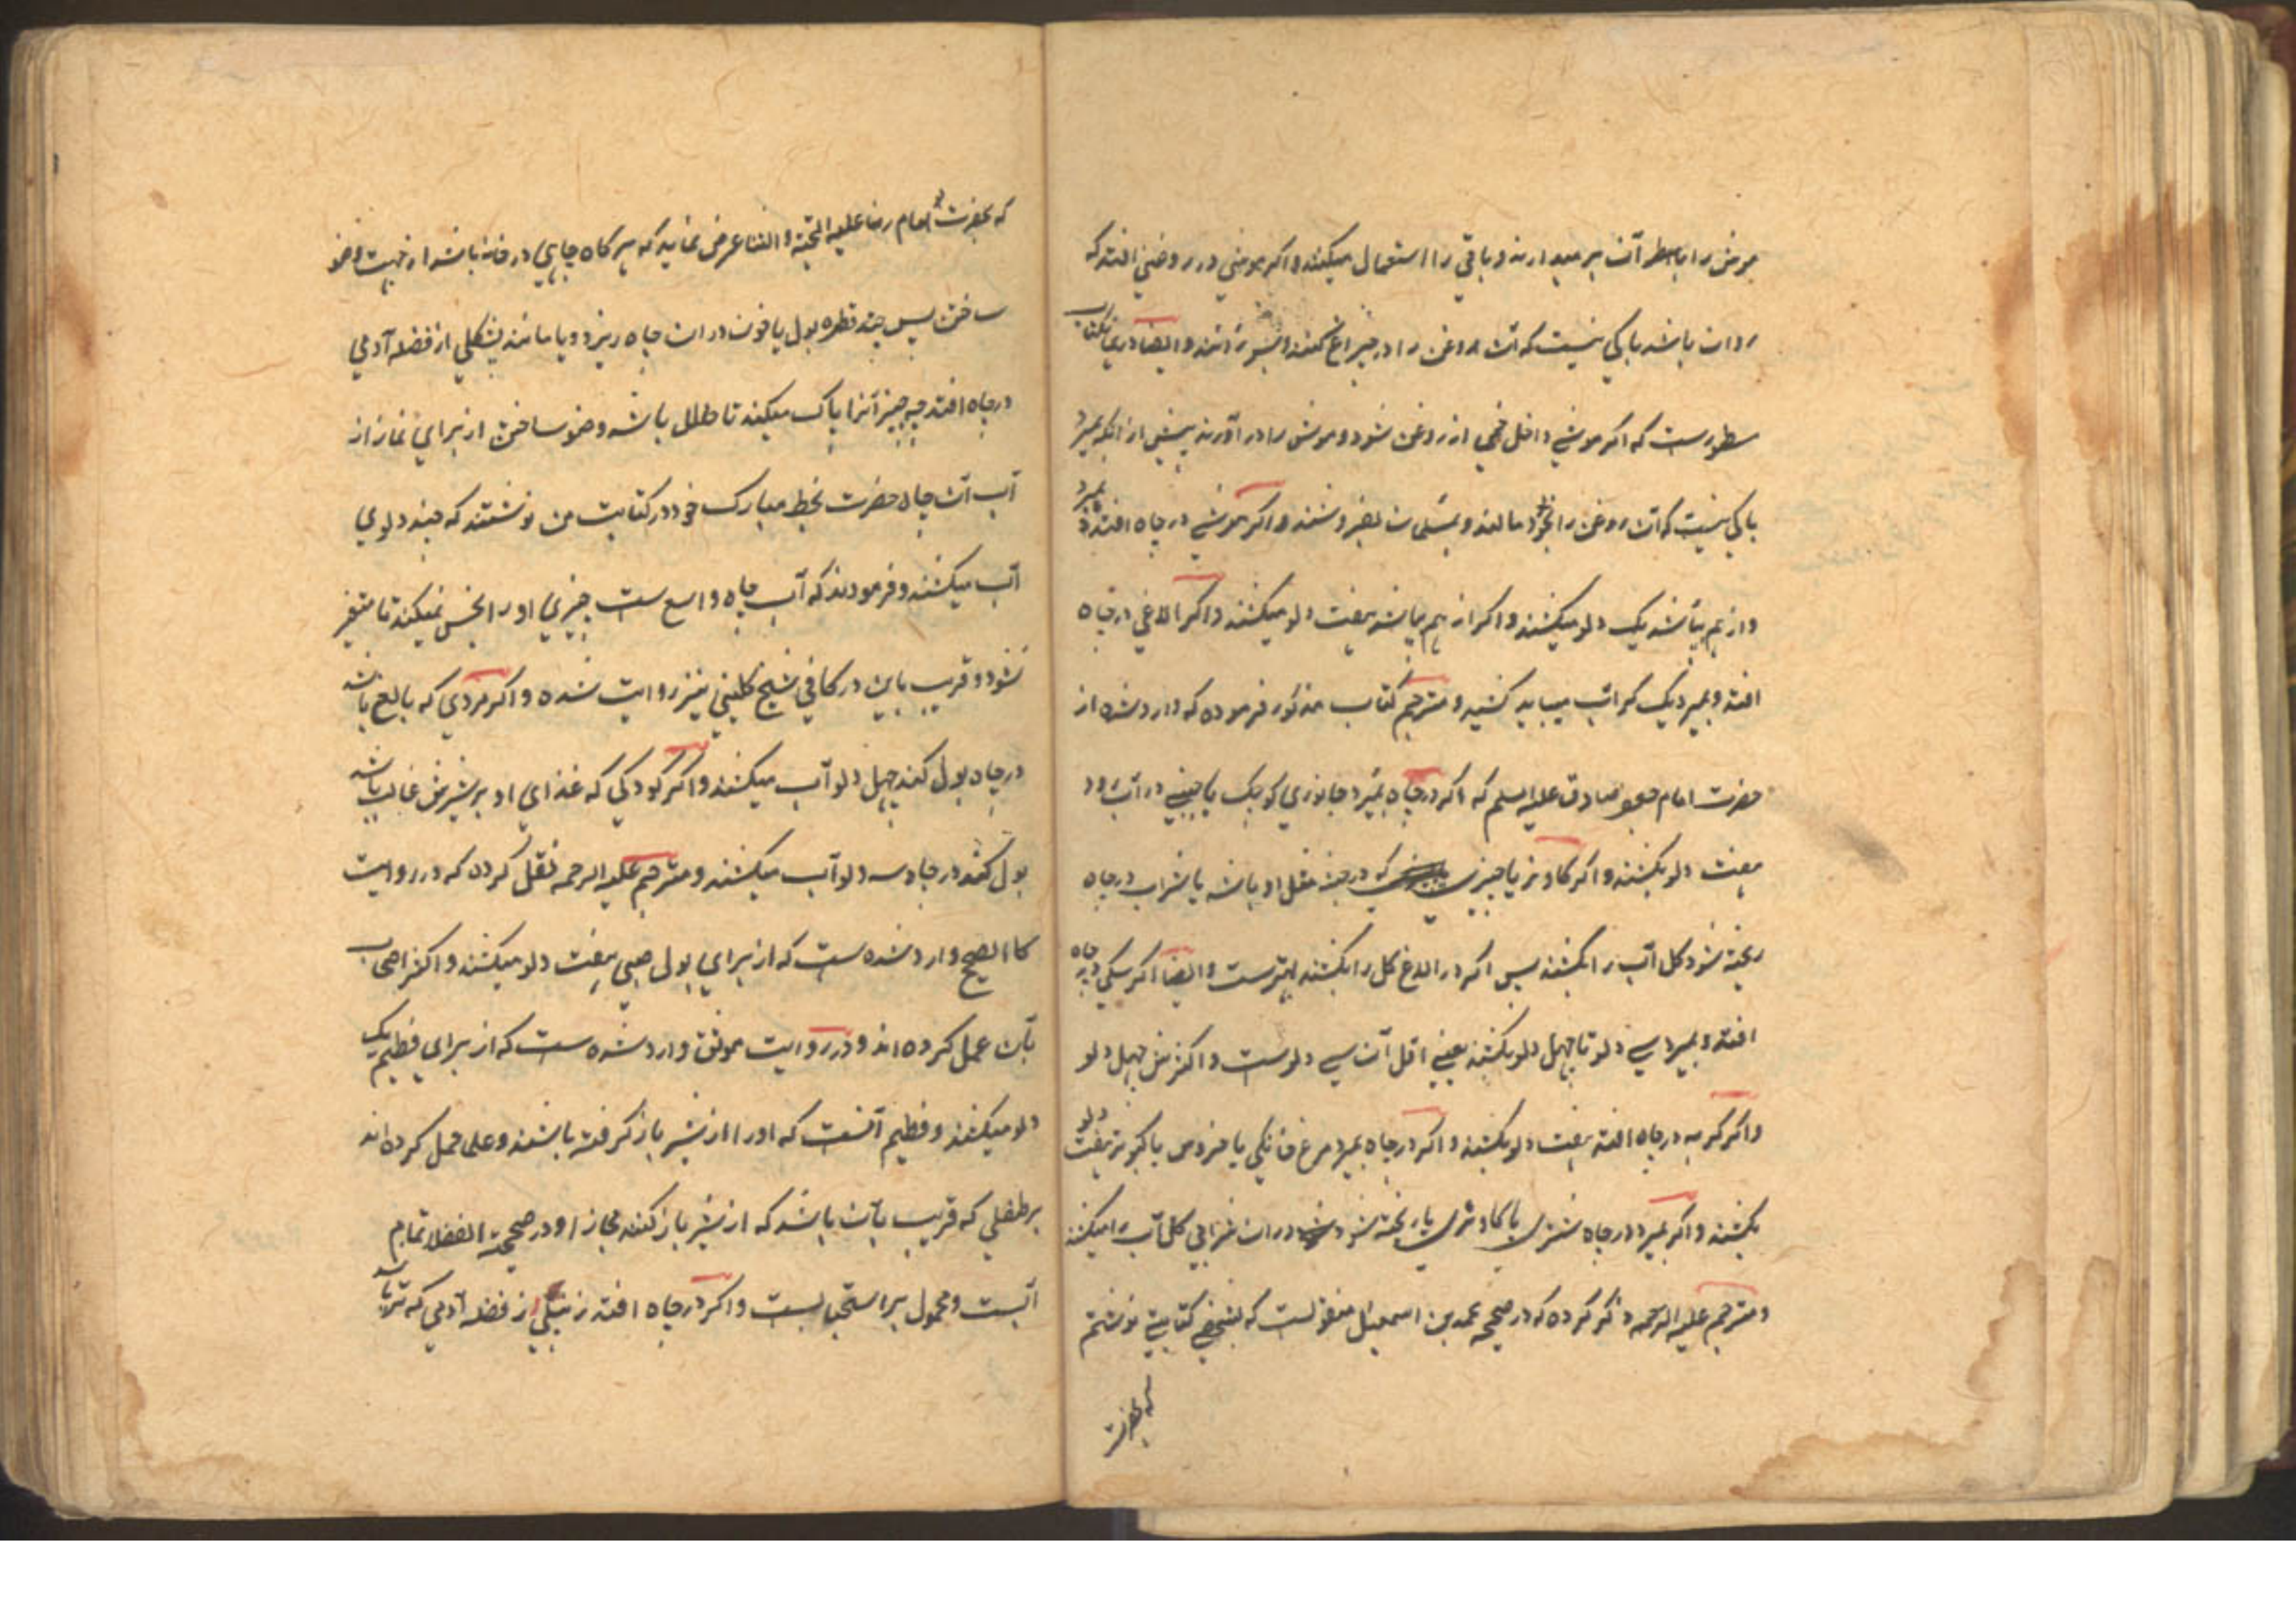 موش را با اطراف آن بر میدارند و باقی را استعمال میکنند و اکر موشی در روغنی افتد که
روان باشد باکی نیست که آن روغن را در چراغ کنند و بسوزانند و ایضا در کتاب
مسطورست که اکر موشی داخل خمی از روغن شود و موش را در آورند پیش از انکه بمیرد
باکی نیست که آن روغن را بخود مالند و بمسلمان بفروشند و اکر موشی در چاه افتد و بمیرد
و از هم نپاشد یک دلو میکشند و اکر از هم بپاشد هفت دلو میکشند و اکر الاغی در چاه
افتد و بمیرد یک کر آب میباید کشید و مترجم کتاب مذکور فرموده که وارد شده از
حضرت امام جعفر صادق علیه السلم که اکر در چاه بمیرد جانوری کوچک یا جنبی در آب رود
هفت دلو بکشند و اکر کاو نر یا چیزی که در جثه مثل او باشد یا شراب در چاه
ریخته شود کل آب را بکشند پس اکر در الاغ کل را بکشند بهترست و ایضا اکر سکی در چاه
افتد و بمیرد سی دلو تا چهل دلو بکشند یعنی اقل آن سی دلوست و اکثرش چهل دلو
و اکر کربه در چاه افتد هفت دلو بکشند و اکر در چاه بمیرد مرغ خانکی یا خروس یا کبوتر هفت دلو
بکشند و اکر بمیرد در چاه شتری یا کاو نری یا ریخته شود در ان شرابی کل آب را میکشند
و مترجم علیه الرحمه ذکر کرده که در صحیحه محمد بن اسمعیل منقولست که بشخصی کتابتی نوشتم
که بحضرت
که بحضرت امام رضا علیه التحیة و الثنا عرض نماید که هر کاه چاهی در خانه باشد از جهت وضو
ساختن پس چند قطره بول یا خون در ان چاه ریزد و یا مانند پشکلی از فضله آدمی
در چاه افتد چه چیز آنرا پاک میکند تا حلال باشد وضو ساختن از برای نماز از
آب آن چاه حضرت بخط مبارک خود در کتابت من نوشتند که چند دلوی
آب میکشند و فرمودند که آب چاه واسع ست چیزی او را نجس نمیکند تا متغیر
نشود و قریب باین در کافی شیخ کلینی نیز روایت شده و اکر مردی که بالغ باشد
در چاه بول کند چهل دلو آب میکشند و اکر کودکی که غذای او بر شیرش غالب باشد
بول کند در چاه سه دلو آب میکشند و مترجم علیه الرحمه نقل کرده که در روایت
کالصحیح وارد شده ست که از برای بول صبی هفت دلو میکشند و اکثر اصحاب
بآن عمل کرده اند و در روایت موثق وارد شده ست که از برای فطیم یک
دلو میکشند و فطیم آنست که او را از شیر باز کرفته باشند و علی حمل کرده اند
بر طفلی که قریب بآن باشد که از شیر باز کنند مجازا و در صحیحة الفضلا تمام
آبست و محمول بر استحبابست و اکر در چاه افتد زنبیلی از فضله آدمی که تر باشد